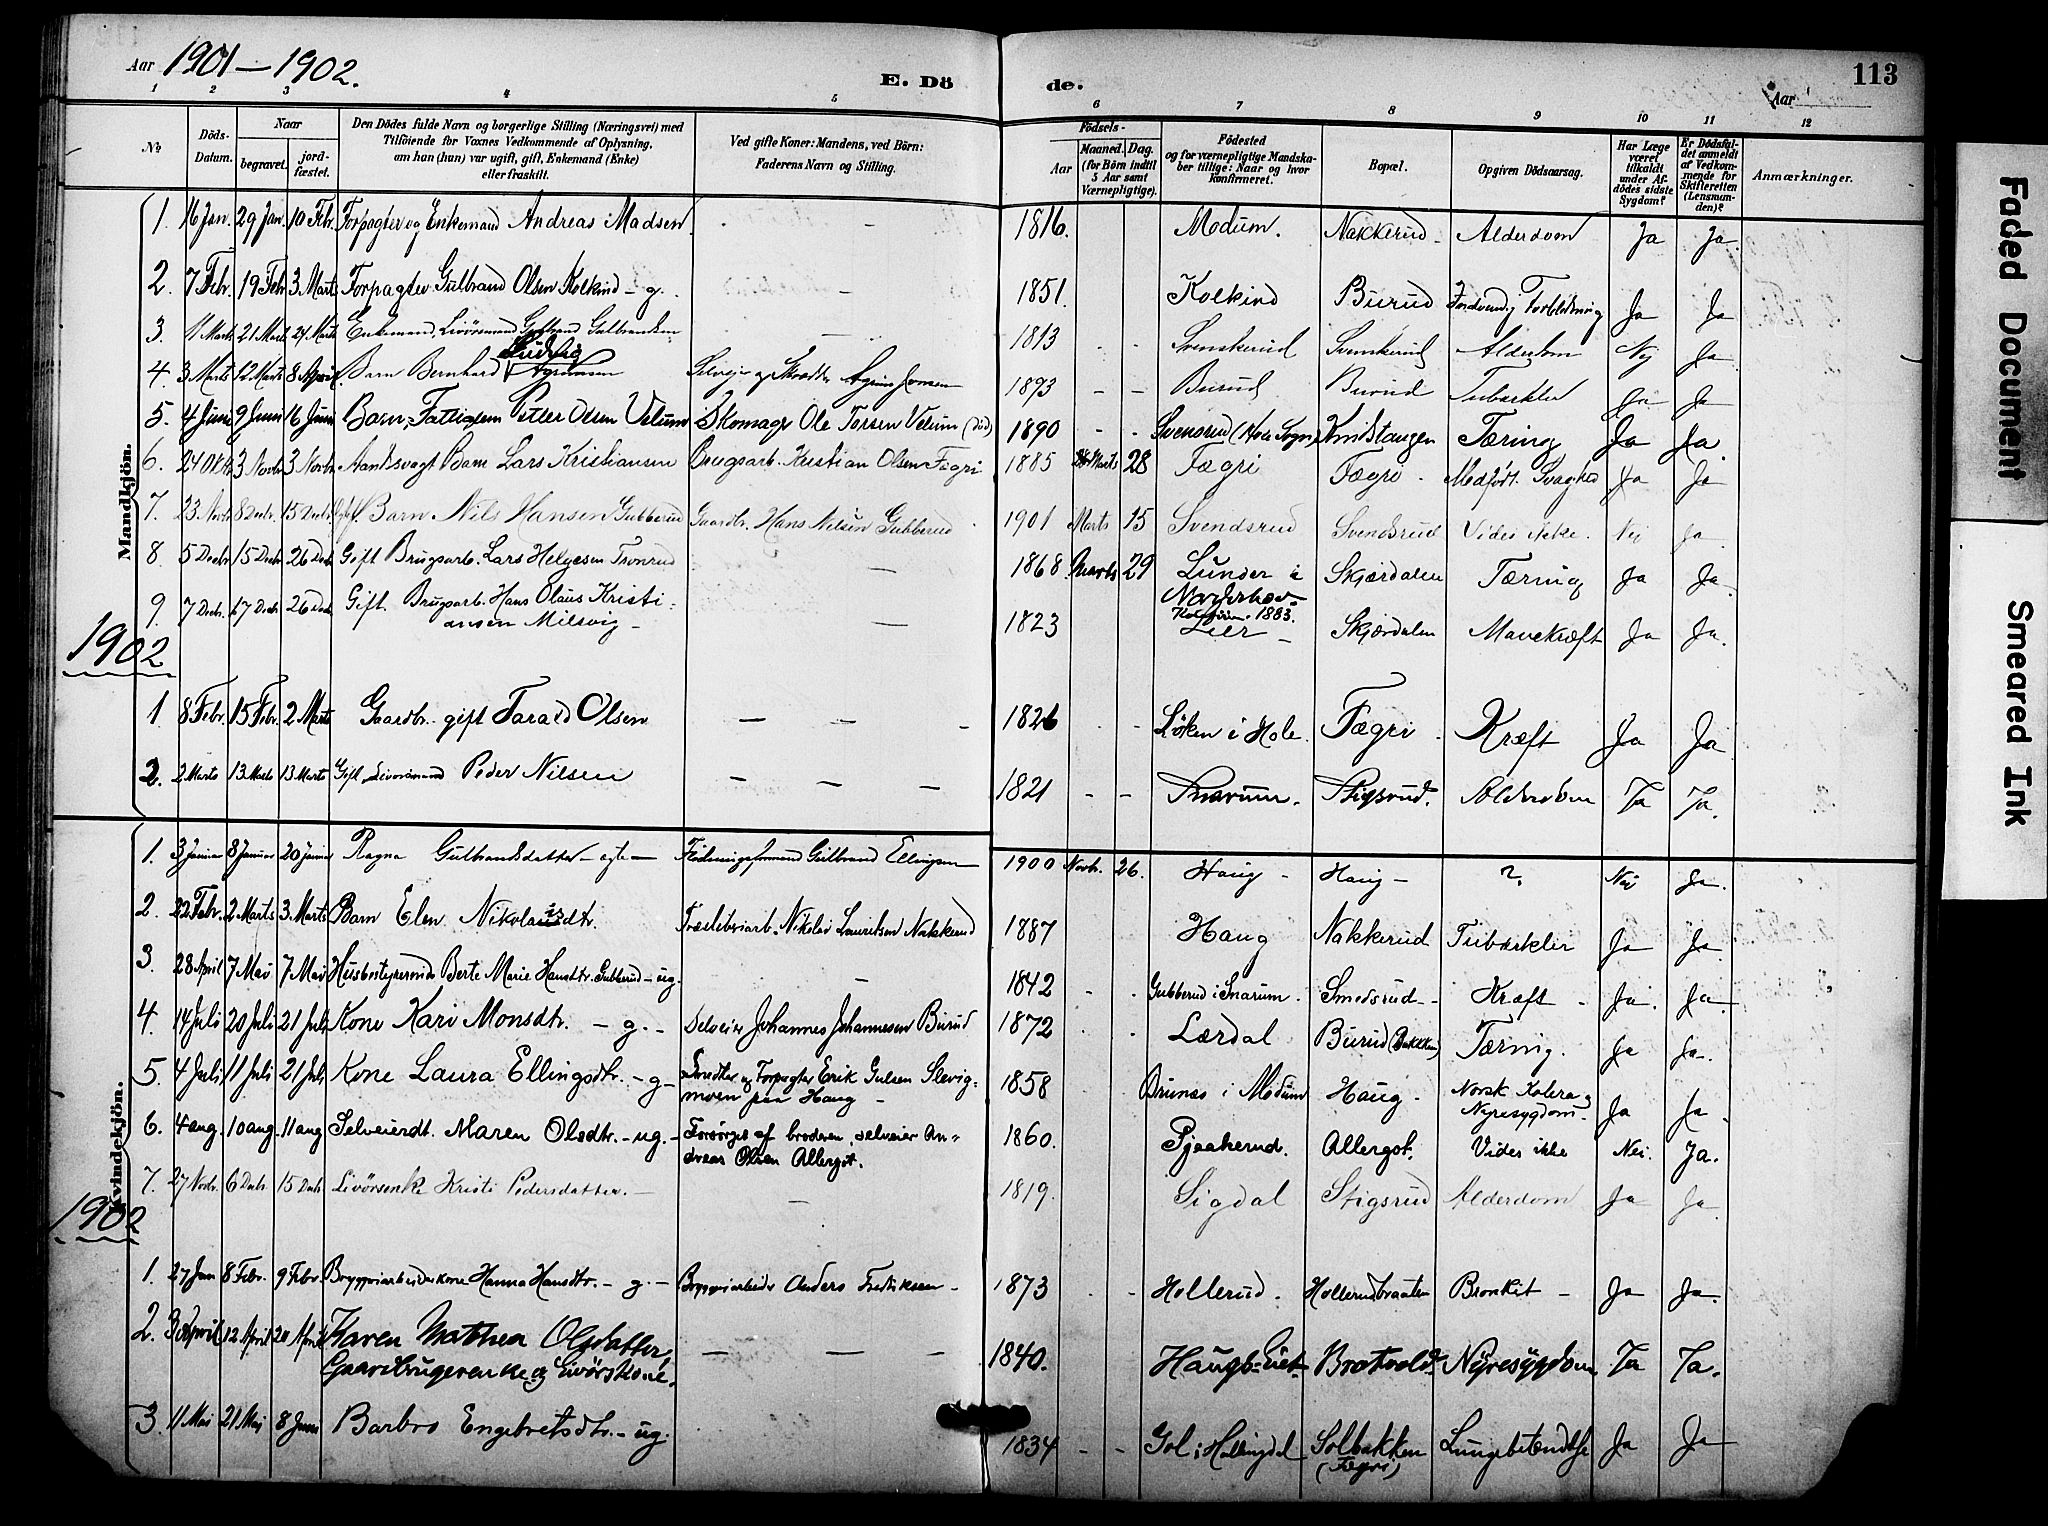 Aar 1901 – 1902.
E. Dö de.
113
Aar
1 2 3 4 5 6 7 8 9 10 11 12
№
Döds-Datum.
Naar
begravet.
jord-fæstet.
Den Dödes fulde Navn og borgerlige Stilling (Næringsvei) med
Tilföiende for Voxnes Vedkommende af Oplysning,
om han (hun) var ugift, gift, Enkemand (Enke)
eller fraskilt.
Ved gifte Koner: Mandens, ved Börn:
Faderens Navn og Stilling.
Födsels-
Aar
Maaned. Dag.
(for Börn indtil
5 Aar samt
Værnepligtige).
Födested
og for værnepligtige Mandska-
ber tillige: Naar og hvor
konfirmeret.
Bopæl.
Opgiven Dödsaarsag.
Har Læge
været
tilkaldt
under Af-
dödes sidste
Sygdom?
Er Dödsfal-
det anmeldt
af Vedkom-
mende for
Skifteretten
(Lensman-
den)?
Anmærkninger.
Mandkjön.
1. 16 Jan. 29 Jan. 10 Febr. Forpagter og Enkemand Andreas Madsen. – 1816. Modum. Nakkerud. Alderdom Ja Ja.
2. 7 Febr. 19 Febr 3 Marts Forpagter Gulbrand Olsen Kolkind – g. – 1851. Kolkind Burud Ja Ja
3. 11 Marts 21 Marts 24 Marts Enkemand, Livörsmand Gulbrand Gulbrandsen – 1813 Svenskerud Svenskerud Alderdom Nej Ja
4. 3 Marts 12 Marts 8 April Barn Bernhard Ludvig Selveier og Skrædder 1893 – – Burud Burud Tuberkler Ja Ja
5. 4 Juni 9 Juni 16 Juni Barn, Fattiglem Petter Olsen Velum Skomager Ole Torsen Velum (död) 1890 Svensrud (Hole Sogn) Knivstangen Tæring Ja Ja.
6. 24 Oktr 3 Novbr 3 Novbr. Aandssvagt Barn Lars Kristiansen Brugsarb. Kristian Olsen Fægri 1885 Marts 28 Fægri Fægri. Medfödt Svaghed Ja Ja
7. 23 Novbr 8 Decbr. 15 Decbr. Barn Nils Hansen Gubberud Gaardbr. Hans Nilsen Gubberud 1901 Marts 15 Svendsrud Svendsrud Vides ikke. Nei Ja.
8 5 Decbr 15 Decbr 26 Decbr Gift Brugsarb. Lars Helgesen Tronrud – 1868. Marts 29 Lunder i Norderhov. Konfirm. 1883. Skjærdalen Tæring Ja Ja.
9. 7 Decbr. 17 Decbr. 26 Decbr Gift. Brugsarb. Hans Olaus Kristi-
ansen Milsvig – – 1823 Lier – Skjærdalen Mavekræft Ja Ja.
1902
1 8 Febr. 15 Febr. 2 Marts Gaardbr. gift Tarald Olsen – – – 1826 Löken i Hole. Fægri. Kræft Ja Ja
2. 2 Marts 13 Marts 13 Marts Gift Livörsmand Peder Nilsen – – – 1821 – – Snarum. Stigsrud. Alderdom Ja Ja.
Kvindekjön.
1. 3 Januar 8 Januar 20 Januar Ragna Gulbrandsdatter – egte – Flödningsformand Gulbrand Ellingsen 1900 Novbr. 26. Haug – Haug – ? Nei Ja.
2. 22 Febr. 2 Marts 3 Marts Barn Elen Nikolaisdtr. Træsliberiarb. Nikolai Lauritsen Nakkerud 1887 Haug Nakkerud Tuberkler Ja Ja.
3. 28 April 7 Mai 7 Mai Husbestyrerinde Berte Marie Hansdtr. Gubberud – ug. – 1842 Gubberud i Snarum. Smedsrud – Kræft – Ja. Ja.
4. 14 Juli 20 Juli 21 Juli Kone Kari Monsdtr. – g. – Selveier Johannes Johannesen Burud 1872 Lærdal Burud (Bakken) Tæring. Ja Ja.
5. 4 Juli 11 Juli 21 Juli Kone Laura Ellingsdtr. – g – Snedker og Forpagter Erik Gulsen Slevig-
moen paa Haug – 1858 Brunæs i Modum Haug – Norsk Kolera og
Nyresygdom – Ja Ja.
6. 4 aug. 10 aug. 11 aug Selveierdt. Maren Olsdtr. – ug. – Forsörget af broderen, selveier An-
dreas Olsen Allergot. 1860. Pjaakerud. Allergot. Vides ikke Nei. Ja.
7. 27 Novbr. 6 Decbr. 15 Decbr Livörsenke Kristi Pedersdatter. – – 1819. Sigdal Stigsrud Alderdom Ja Ja.
1902
1. 27 Jan 8 Febr. 9 Febr. Bryggeriarbeiderkone Hanna Hansdtr. – g. – Bryggeriarbeider Anders Fredriksen – 1873 – Hollerud. Hollerudbraaten Bronkit – Ja Ja.
2. 3 April 12 April 20 April Karen Mathea Olsdatter,
Gaardbrugerenke og Livörskone. – – 1840. Haugs-Eiet. Brotvold. Nyresygdom Ja Ja.
3. 11 Mai 21 Mai 8 Juni Barbro Engebretsdtr. – ug. 1834 – – Gol i Hallingdal Solbakken
(Fægri) Lungebetændelse Ja Ja
Faded Document
Smeared Ink